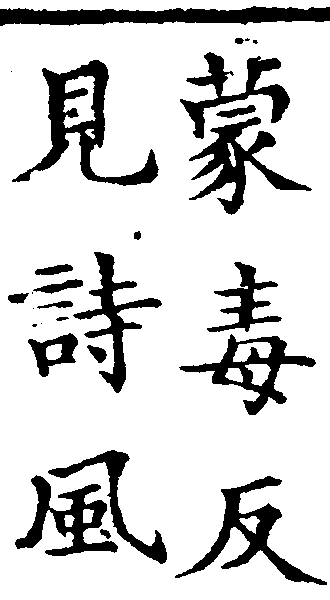 蒙毒反
見詩風